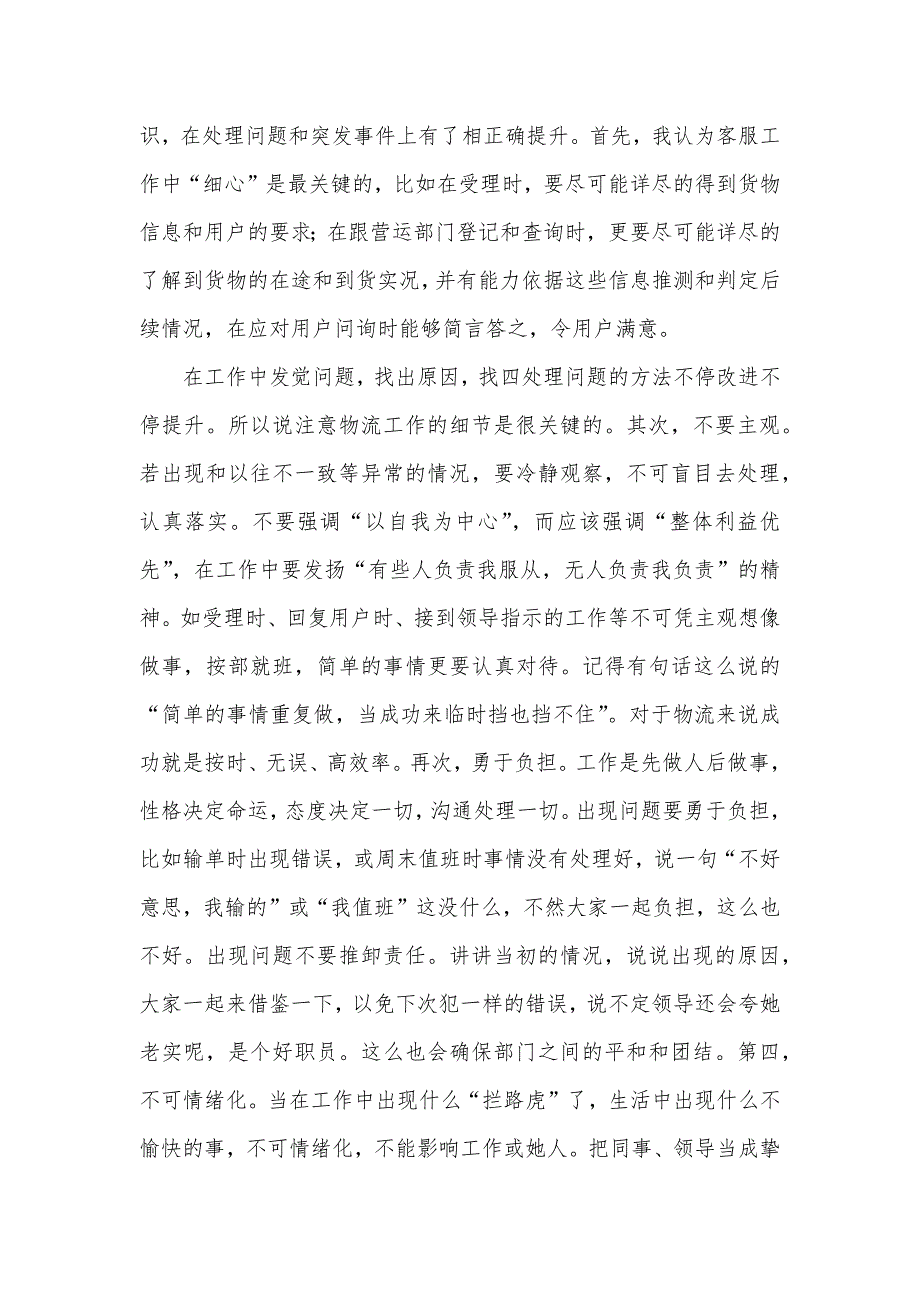 识，在处理问题和突发事件上有了相正确提升。首先，我认为客服工
作中“细心”是最关键的，比如在受理时，要尽可能详尽的得到货物
信息和用户的要求；在跟营运部门登记和查询时，更要尽可能详尽的
了解到货物的在途和到货实况，并有能力依据这些信息推测和判定后
续情况，在应对用户问询时能够简言答之，令用户满意。
在工作中发觉问题，找出原因，找四处理问题的方法不停改进不
停提升。所以说注意物流工作的细节是很关键的。其次，不要主观。
若出现和以往不一致等异常的情况，要冷静观察，不可盲目去处理，
认真落实。不要强调“以自我为中心”，而应该强调“整体利益优
先”，在工作中要发扬“有些人负责我服从，无人负责我负责”的精
神。如受理时、回复用户时、接到领导指示的工作等不可凭主观想像
做事，按部就班，简单的事情更要认真对待。记得有句话这么说的
“简单的事情重复做，当成功来临时挡也挡不住”。对于物流来说成
功就是按时、无误、高效率。再次，勇于负担。工作是先做人后做事，
性格决定命运，态度决定一切，沟通处理一切。出现问题要勇于负担，
比如输单时出现错误，或周末值班时事情没有处理好，说一句“不好
意思，我输的”或“我值班”这没什么，不然大家一起负担，这么也
不好。出现问题不要推卸责任。讲讲当初的情况，说说出现的原因，
大家一起来借鉴一下，以免下次犯一样的错误，说不定领导还会夸她
老实呢，是个好职员。这么也会确保部门之间的平和和团结。第四，
不可情绪化。当在工作中出现什么“拦路虎”了，生活中出现什么不
愉快的事，不可情绪化，不能影响工作或她人。把同事、领导当成挚